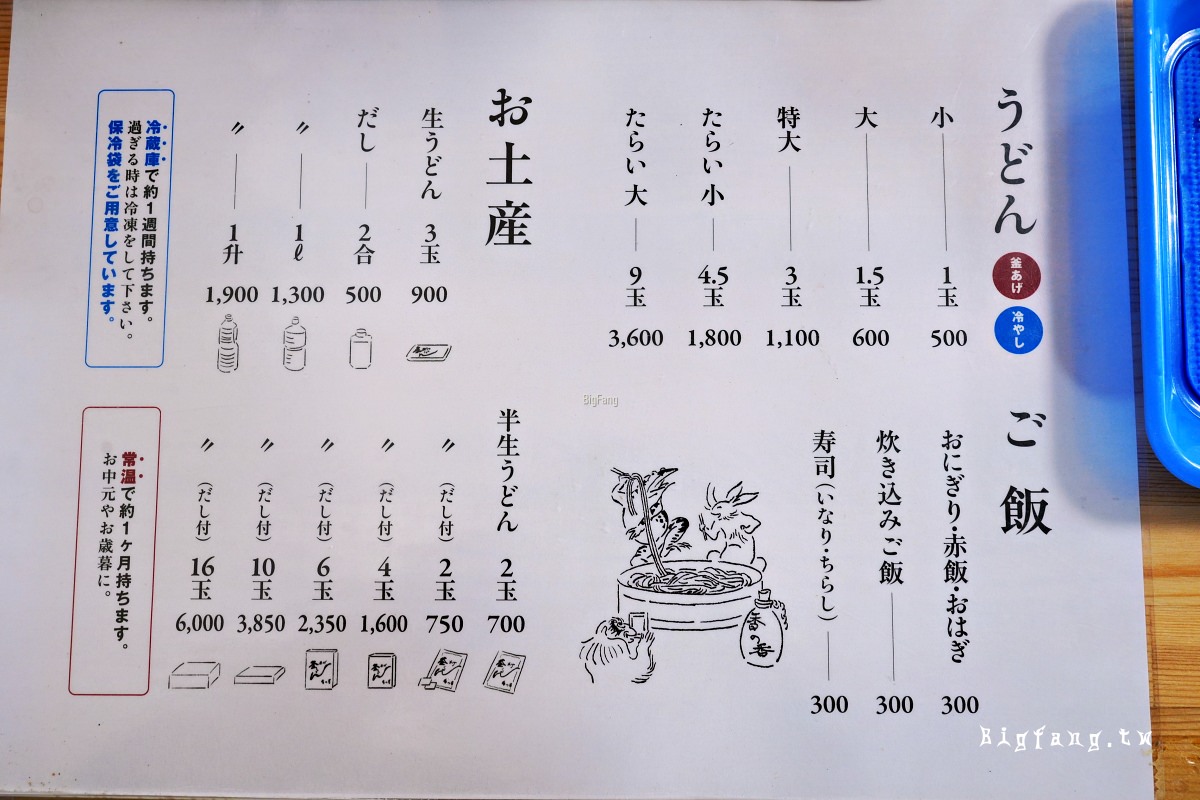 うどん 釜あげ 冷やし
小 1玉 500
大 1.5玉 600
特大 3玉 1,100
たらい 小 4.5玉 1,800
たらい 大 9玉 3,600
ご飯
おにぎり・赤飯・おはぎ 300
炊き込みご飯 300
寿司(いなり・ちらし) 300
香の香
お土産
生うどん 3玉 900
だし 2合 500
〃 1ℓ 1,300
〃 1升 1,900
冷蔵庫で約1週間持ちます。
過ぎる時は冷凍をして下さい。
保冷袋をご用意しています。
半生うどん 2玉 700
〃 (だし付) 2玉 750
〃 (だし付) 4玉 1,600
〃 (だし付) 6玉 2,350
〃 (だし付) 10玉 3,850
〃 (だし付) 16玉 6,000
常温で約1ヶ月持ちます。
お中元やお歳暮に。
BigFang
Bigfang.tw